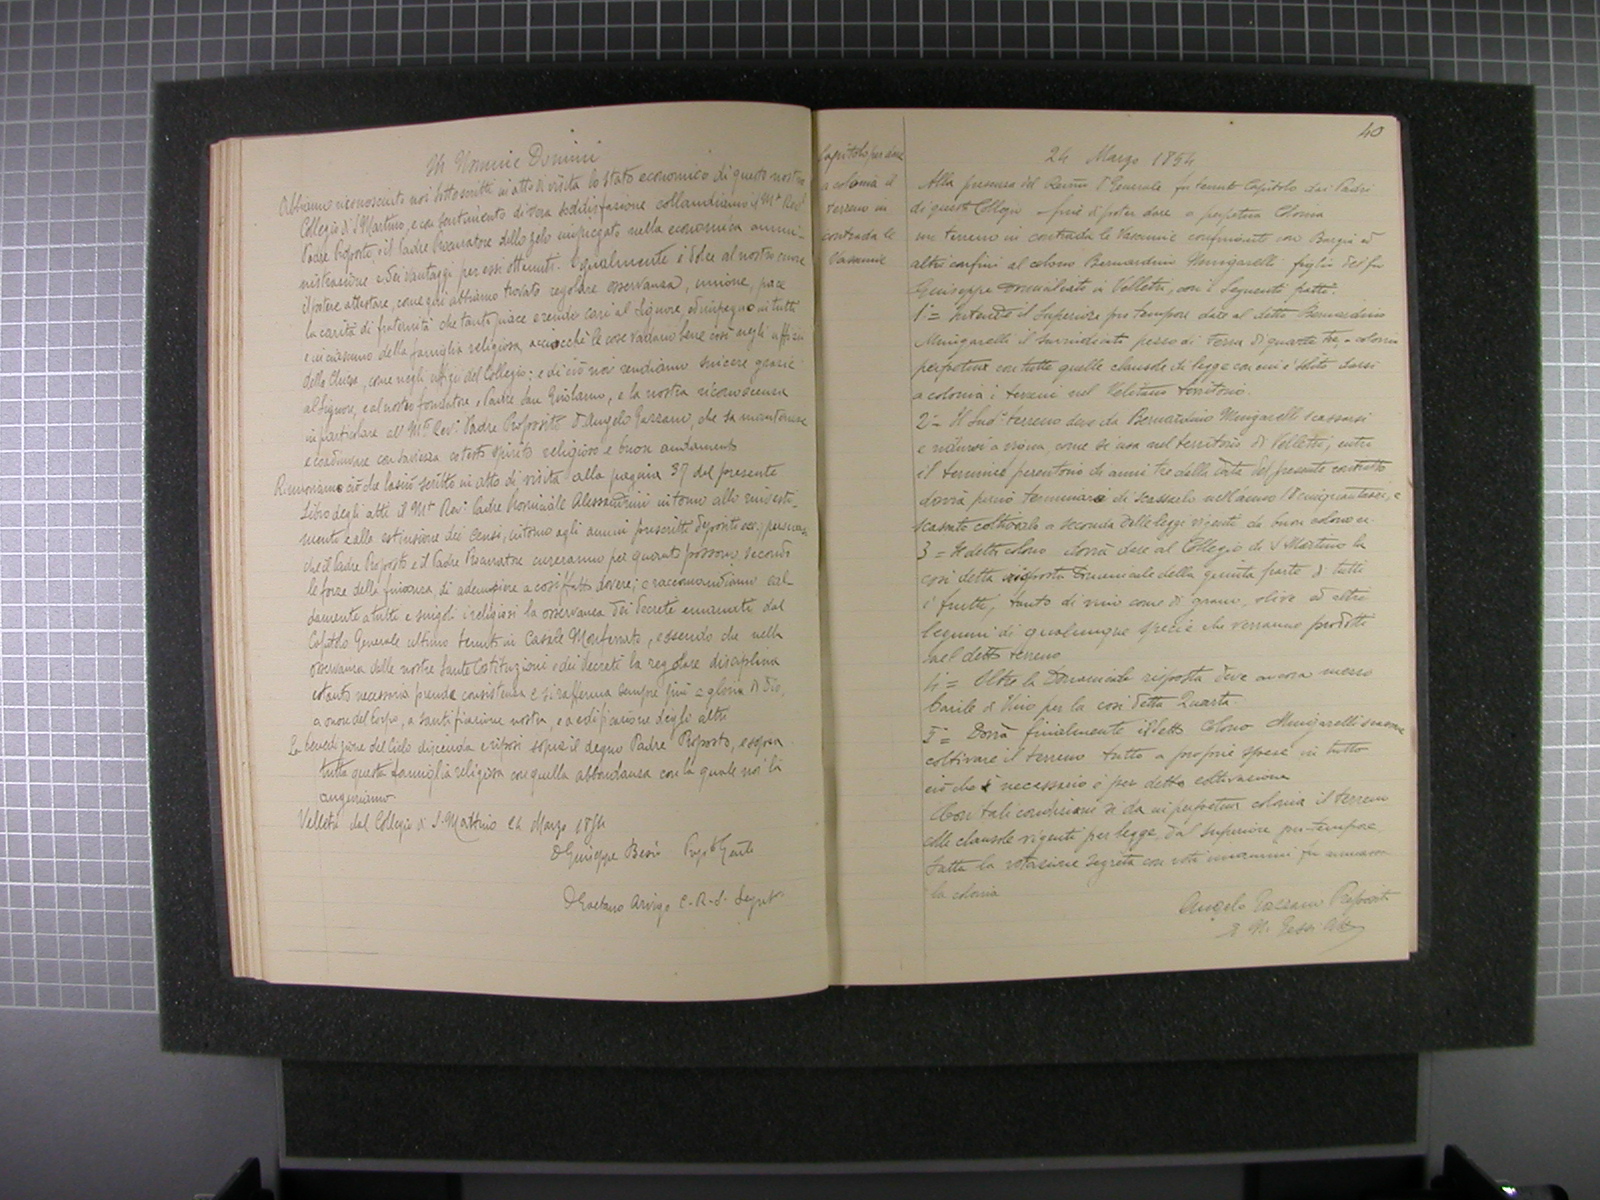 In Nomine Domini
Abbiamo riconosciuto noi sottoscritti in atto di visita lo stato economico di questo nostro
Collegio di S Martino, e con sentimento di vera soddisfazione collaudiamo il Mto Revdo
Padre Preposto, e il Padre Procuratore dello zelo impiegato nella economica ammi-
nistrazione e dei vantaggi per essi ottenuti. Egualmente è dolce al nostro cuore
il potere attestare, come qui abbiamo trovato regolare osservanza, unione, pace
la carità di fraternità che tanto piace e rende cari al Signore, ed impegno in tutti
e in ciascuno della famiglia religiosa, acciocchè le cose vadano bene così negli uffizi
della Chiesa, come negli uffizi del Collegio; e di ciò noi rendiamo sincere grazie
al Signore, e al nostro fondatore e Padre San Girolamo, e la nostra riconoscenza
in particolare al Mto Revo Padre Preposito D Angelo, che sa mantenere
e condurre con saviezza cotesto spirito religioso e buon andamento
Rinnoviamo ciò che lasciò scritto in atto di visita alla pagina 37 del presente
Libro degli atti il Mto Revo Padre Provinciale Alessandrini intorno allo rinvesti-
mento e alla estinzione dei Censi, intorno agli annui prescritti depositi ecc; persuasi
che il Padre Preposto e il Padre Procuratore cureranno per quanto possono, secondo
le forze della finanza, di adempiere a così fatto dovere; e raccomandiamo cal-
damente a tutti e singoli i religiosi la osservanza dei decreti emanati dal
Capitolo Generale ultimo tenuto in Casale Monferrato, essendo che nella
osservanza delle nostre Sante Costituzioni e dei decreti la regolare disciplina
cotanto necessaria prende consistenza e si rafferma sempre più a gloria di Dio,
a onore del Corpo, a santificazione nostra, e a edificazione degli altri
La benedizione del Cielo discenda e riposi sopra il degno Padre Preposto, e sopra
tutta questa famiglia religiosa con quella abbondanza con la quale noi la
auguriamo
Velletri dal Collegio di S. Martino 24 Marzo 1854
D Giuseppe Besio Prep. Gnle
D Gaetano Arrigo C. R. S. Segret.
40
Capitolo per dare
a colonia il
terreno in
contrada le
Vasanie
24 Marzo 1854
Alla presenza del Revmo P Generale fu tenuto Capitolo dai Padri
di questo Collegio fine di poter dare a perpetua Colonia
un terreno in contrada le Vasanie confinanti con Borgia ed
altri confini al colono Bernardino Mengarelli figlio del fu
Giuseppe domiciliato in Velletri, con i seguenti patti.
1 = Intende il Superiore pro tempore dare al detto Bernardino
Mengarelli il surriferito pezzo di terra di quarte tre, a colonia
perpetua con tutte quelle clausole di legge con cui è solito darsi
a colonia i terreni nel Veliterno territorio.
2 = Il Sud terreno deve da Bernardino Mengarelli scassarsi
e ridursi a vigna, come si usa nel territorio di Velletri, entro
il termine perentorio di anni tre dalla data del presente contratto
dovrà perciò terminare di scassarlo nell'anno 18 cinquantasei, e
scassato coltivarlo a seconda delle leggi vigenti da buon colono ec.
3 = Il detto colono dovrà dare al Collegio di S Martino la
così detta risposta Domenicale della quinta parte di tutti
i frutti, tanto di vino come di grano, olive ed altri
legumi di qualunque specie che verranno prodotti
nel detto terreno
4 = Oltre la Domenicale risposta deve ancora mezzo
barile di Vino per la così detta Quarta.
5 = Dovrà finalmente il detto Colono Mengarelli
coltivare il terreno tutto a proprie spese in tutto
ciò che è necessario per detta coltivazione
Con tali condizioni si da in perpetua colonia il terreno
alle clausole vigenti per legge, dal superiore pro-tempore.
Fatta la votazione segreta con voti unanimi fu
la colonia
Angelo Preposito